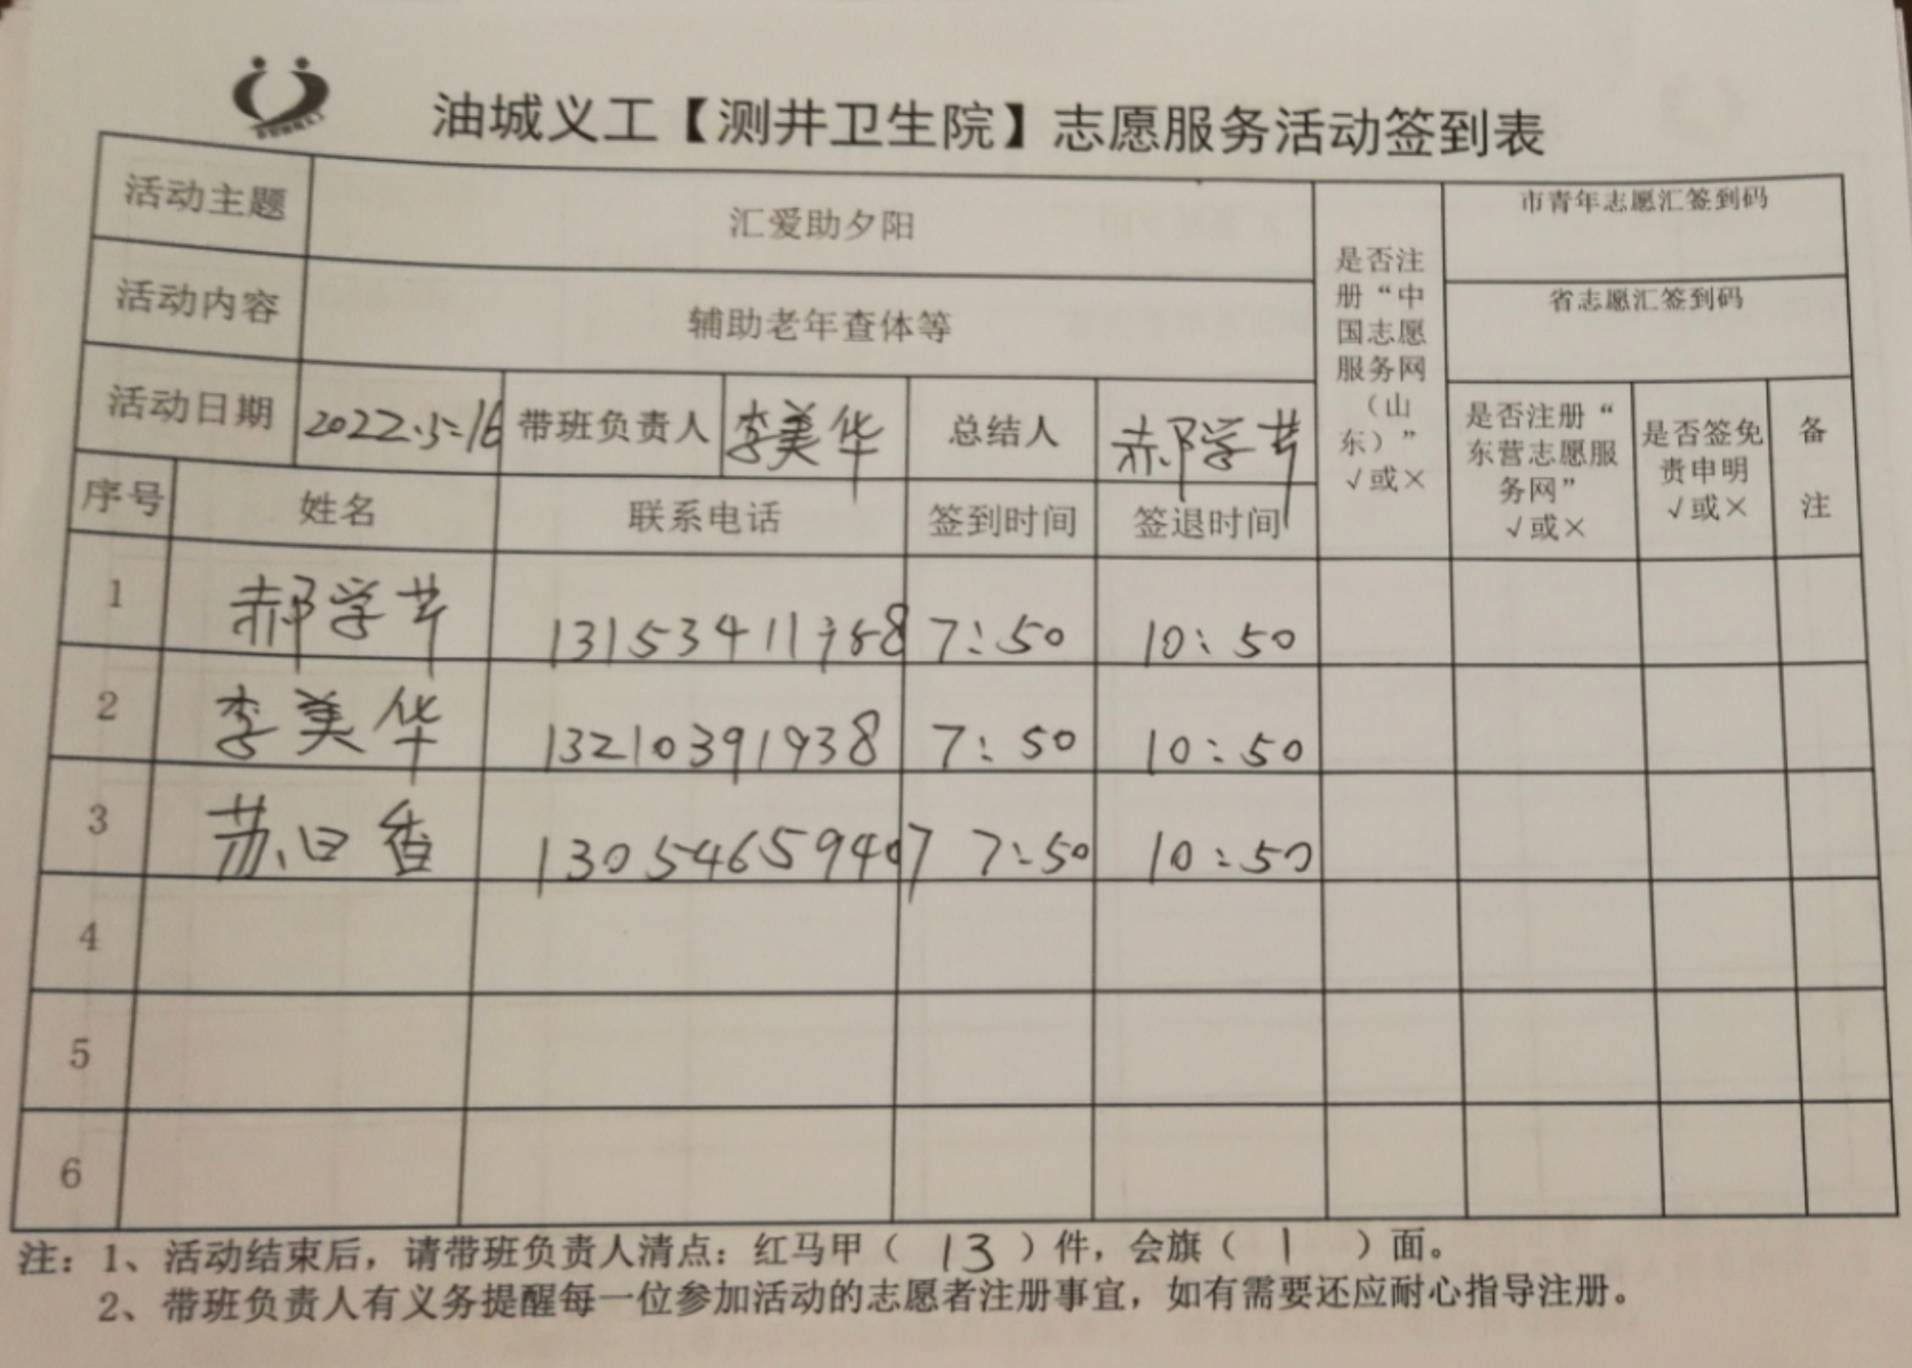 油城义工【测井卫生院】志愿服务活动签到表
活动主题 汇爱助夕阳 市青年志愿汇签到码
活动内容 辅助老年查体等 省志愿汇签到码
是否注册“中国志愿服务网（山东）”√或×
活动日期 带班负责人 李美华 总结人 郝学芹 是否注册“东营志愿服务网”√或× 是否签免责申明√或× 备注
序号 姓名 联系电话 签到时间 签退时间
1 郝学芹 7:50 10:50
2 李美华 13210391938 7:50 10:50
3 苏曰香 13054659407 7:50 10:50
4
5
6
注：1、活动结束后，请带班负责人清点：红马甲（ 13 ）件，会旗（ 1 ）面。
2、带班负责人有义务提醒每一位参加活动的志愿者注册事宜，如有需要还应耐心指导注册。